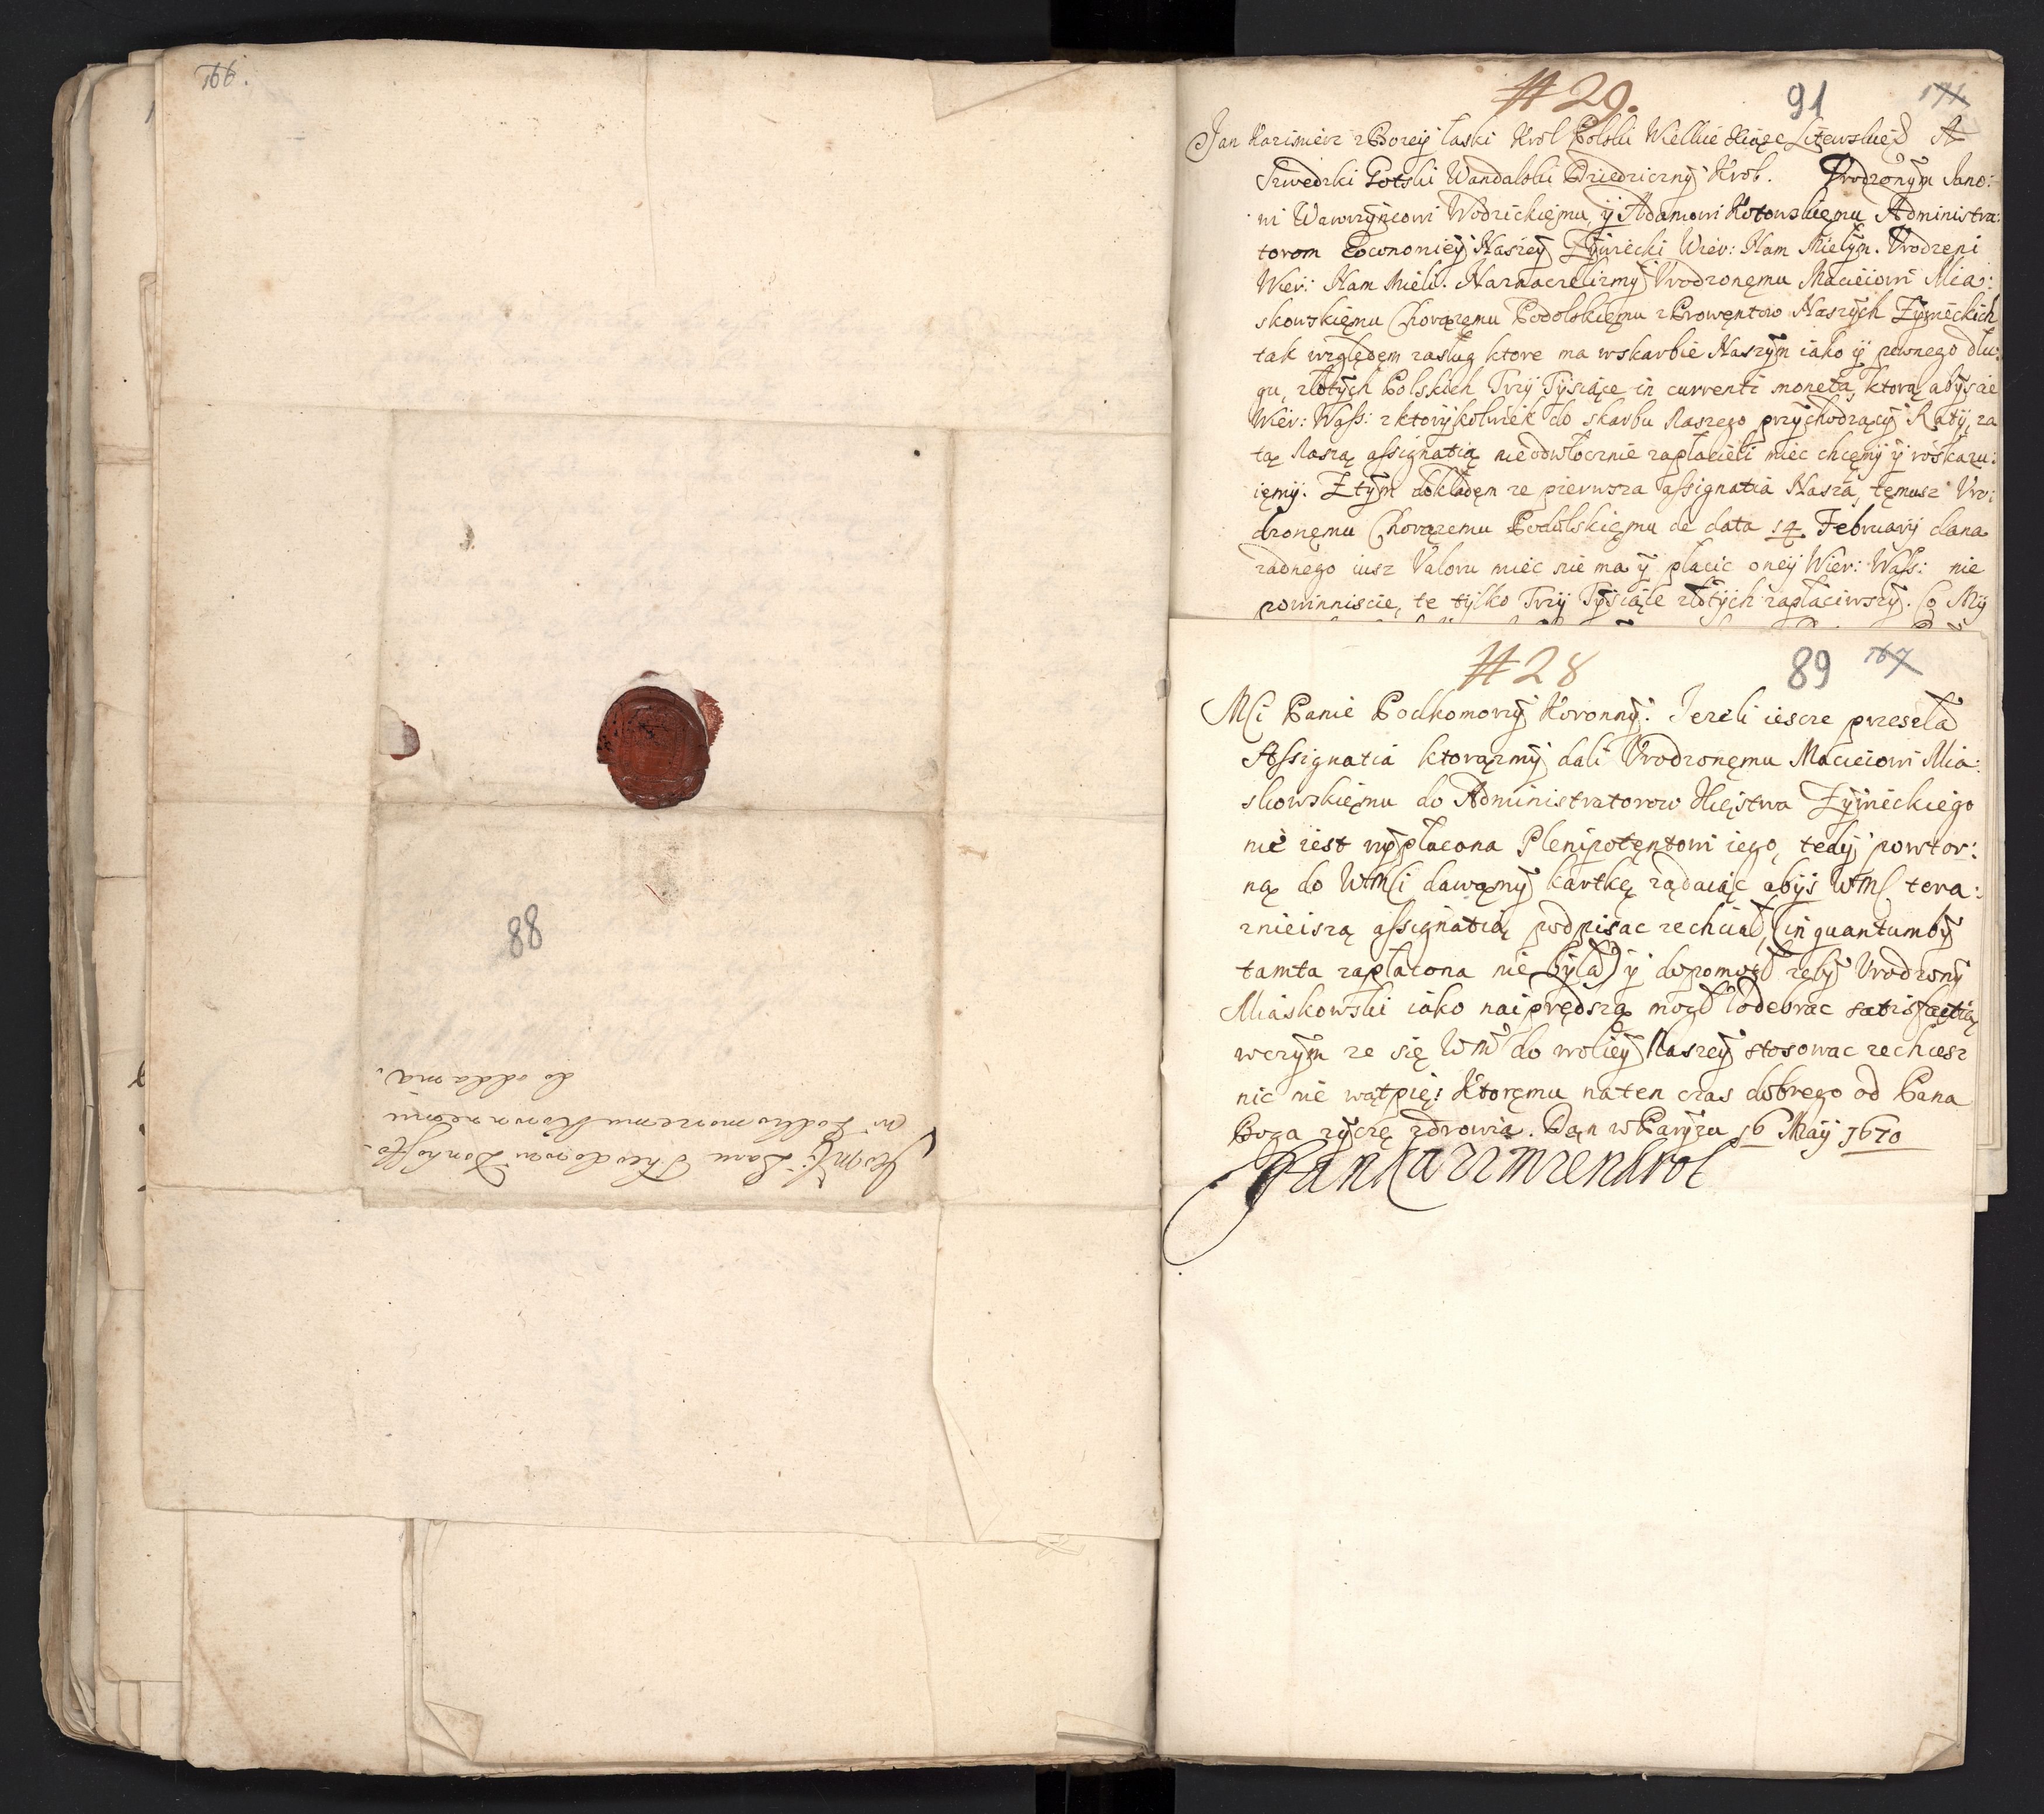 166.
88
Jego Mſci Panu Theodorowi Donhoffo-
wi Podkomorzemu Koronnemu
do oddania.
# 29.
91
171
Jan Kazimierz z Bozey łaski Krol Polski Wielkie Xiąze Litewskie
Szwedzki Gotski Wandalski Dziedziczny Krol. Vrodzonym Jano:
wi Wawrzyncowi Wodzickiemu y Adamowi Kotowskiemu Administra:
torom Eoconomiey Naszey Zywiecki Wier: Nam Miełym. Vrodzeni
Wier: Nam Mieli. Naznaczelizmy Vrodzonęmu Macieiowi Mia:
skowskięmu Chorązęmu Podolskięmu z Prowęntow Naszych Zywieckich
tak względęm zasług ktore ma wskarbie Naszym iako y pewnego dłu:
gu, złotych Polskich Trzy Tysiące in currenti moneta, ktorą abyscie
Wier: Waſs: z ktorykolwiek do skarbu Naszego przychodzący Raty, za
tą Naszą aſsignatią nieodwłocznie zapłacieli miec chcęmy y roskazu:
ięmy. Ztym dokładęm ze pierwsza aſsignatia Nasza, tęmusz Vro:
dzonęmu Chorązemu Podolskięmu de data 14 February dana
zadnego iusz Valoru miec nie ma y płacic oney Wier: Waſs: nie
powinniscie, te tylko Trzy Tysiące złotych zapłaciwszy. Co My
# 28
89
167
Mſci Panie Podkomorzy Koronny. Jezeli iescze przeszła
Aſsignatia ktorązmy dali Vrodzonęmu Macieiowi Mia:
skowskięmu do Administratorow Xięstwa Zywieckiego
nie iest wypłacona Plenipotęntowi iego, tedy powtor:
ną do WMſci dawąmy kartkę ządaiąc abys WMſ tera:
znieiszą aſsignatią podpisac zechciał, (in quantumby
tamta zapłacona nie była) y dopomogł zeby Vrodzony
Miaskowski iako naiprędszą mogł odebrac satisfactią
wczym ze się WM do woliey Naszey stosowac zechcesz
nic nie wątpię: Ktoręmu na ten czas dobrego od Pana
Boga zyczę zdrowia. Dąn w Paryzu 16 Maij 1670
Jan Cazimierz Krol